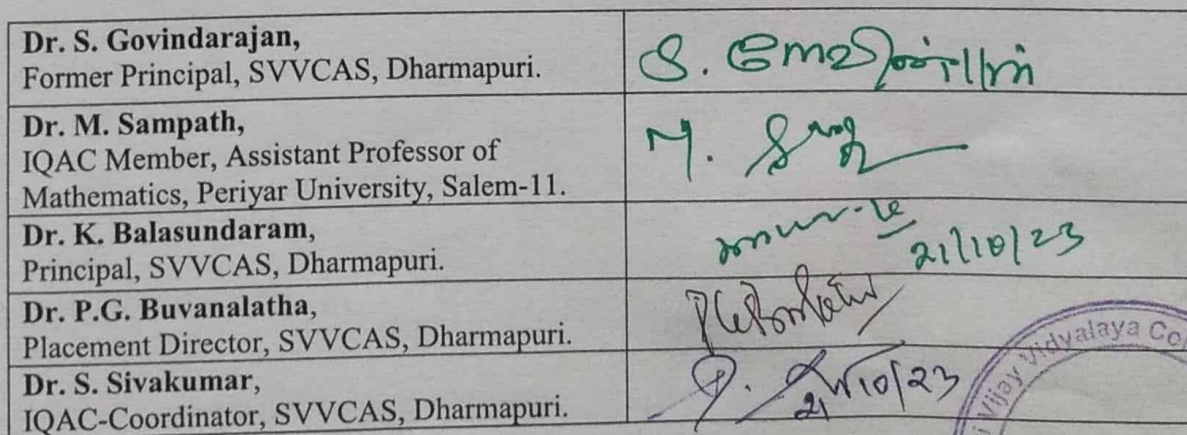 Dr. S. Govindarajan,
Former Principal, SVVCAS, Dharmapuri.
Dr. M. Sampath,
IQAC Member, Assistant Professor of
Mathematics, Periyar University, Salem-11.
Dr. K. Balasundaram,
Principal, SVVCAS, Dharmapuri.
21/10/23
Dr. P.G. Buvanalatha,
Placement Director, SVVCAS, Dharmapuri.
Dr. S. Sivakumar,
IQAC-Coordinator, SVVCAS, Dharmapuri.
21/10/23
Vijay Vidyalaya